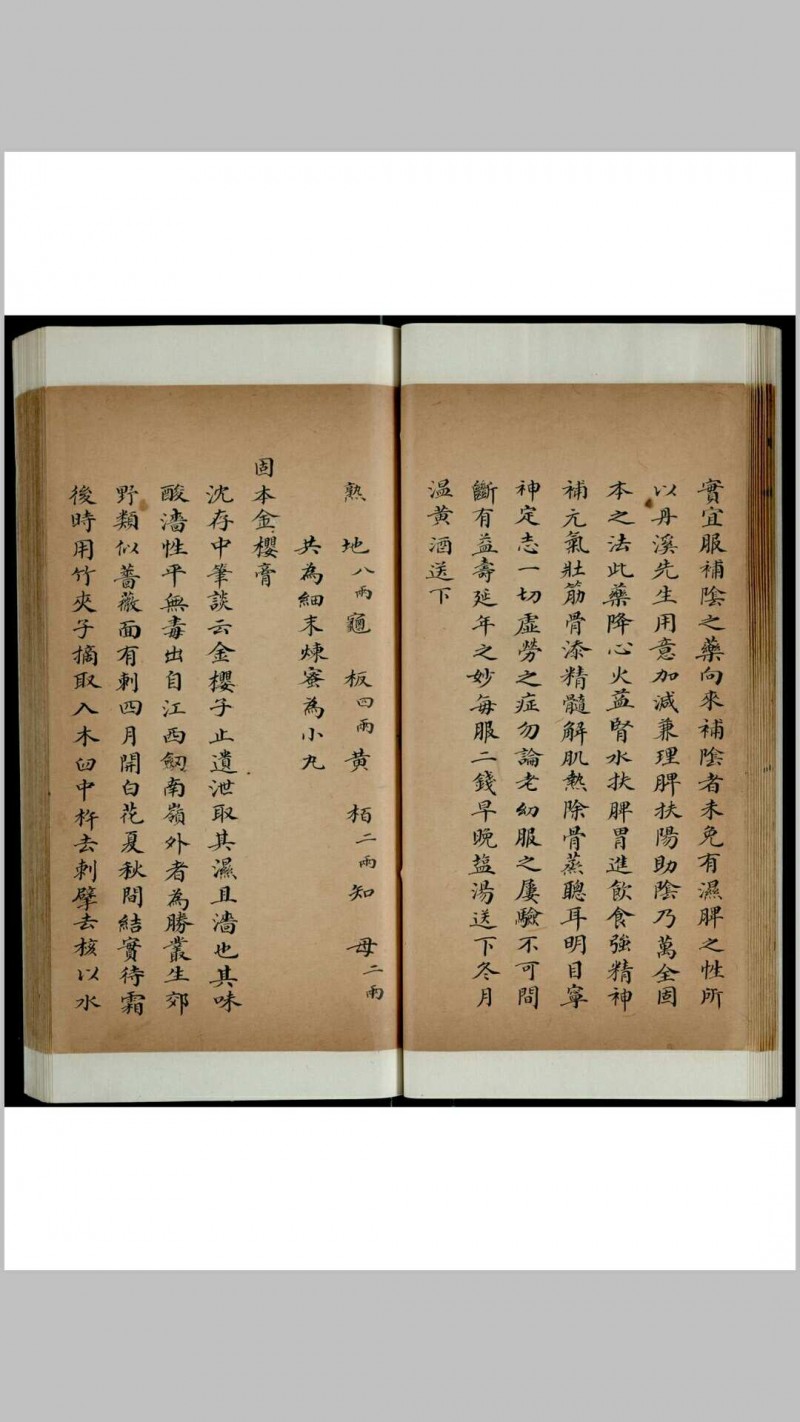 實宜服補陰之藥向來補陰者未免有濕脾之性所
以丹溪先生用意加減兼理脾扶陽助陰乃萬全固
本之法此藥降心火益腎水扶脾胃進飲食強精神
補元氣壯筋骨添精髓解肌熱除骨蒸聰耳明目寧
神定志一切虛勞之症勿論老幼服之屢驗不可間
斷有益壽延年之妙每服二錢早晚塩湯送下冬月
温黄酒送下
熟地八兩龜板四兩黄栢二兩知母二兩
共為細末煉蜜為小丸
固本金櫻膏
沈存中筆談云金櫻子止遺泄取其濕且濇也其味
酸濇性平無毒出自江西劒南嶺外者為勝叢生郊
野類似薔薇面有刺四月開白花夏秋間結實待霜
後時用竹夾子摘取入木臼中杵去刺擘去核以水